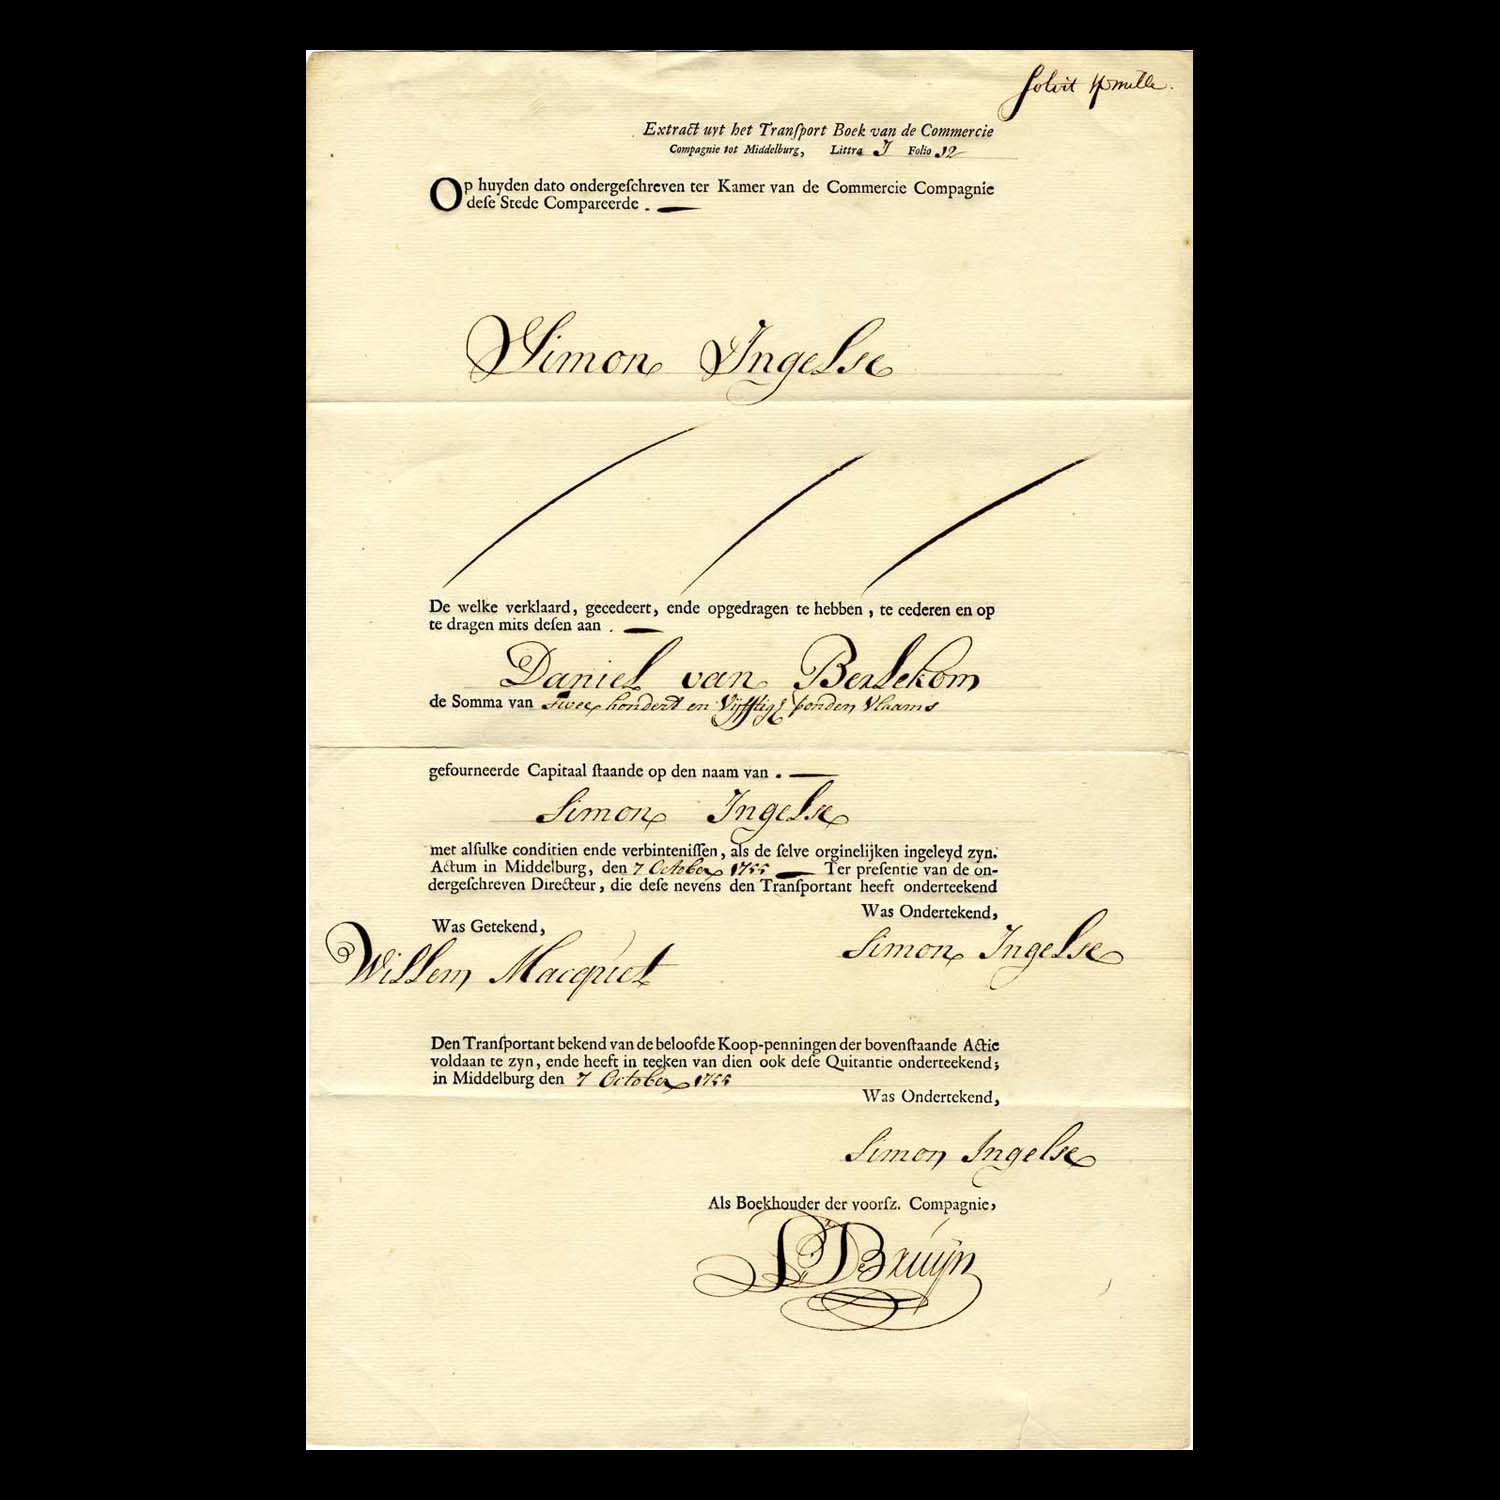 Solvit p mille.
Extract uyt het Tranſport Boek van de Commercie
Compagnie tot Middelburg, Littra J Folio 12
Op huyden dato ondergeſchreven ter Kamer van de Commercie Compagnie
deſe Stede Compareerde .
Simon Ingelse
De welke verklaard, gecedeert, ende opgedragen te hebben, te cederen en op
te dragen mits deſen aan .
Daniel van Berlekom
de Somma van Twee hondert en Vijfftig ponden Vlaams
gefourneerde Capitaal ſtaande op den naam van .
Simon Ingelse
met alſulke conditien ende verbinteniſſen, als de ſelve orginelijken ingeleyd zyn.
Actum in Middelburg, den 7 October 1755 Ter preſentie van de on-
dergeſchreven Directeur, die deſe nevens den Tranſportant heeft onderteekend
Was Ondertekend,
Was Getekend,
Simon Ingelse
Willem Macquet
Den Tranſportant bekend van de beloofde Koop-penningen der bovenſtaande Actie
voldaan te zyn, ende heeft in teeken van dien ook deſe Quitantie onderteekend;
in Middelburg den 7 October 1755
Was Ondertekend,
Simon Ingelse
Als Boekhouder der voorſz. Compagnie,
De Bruijn